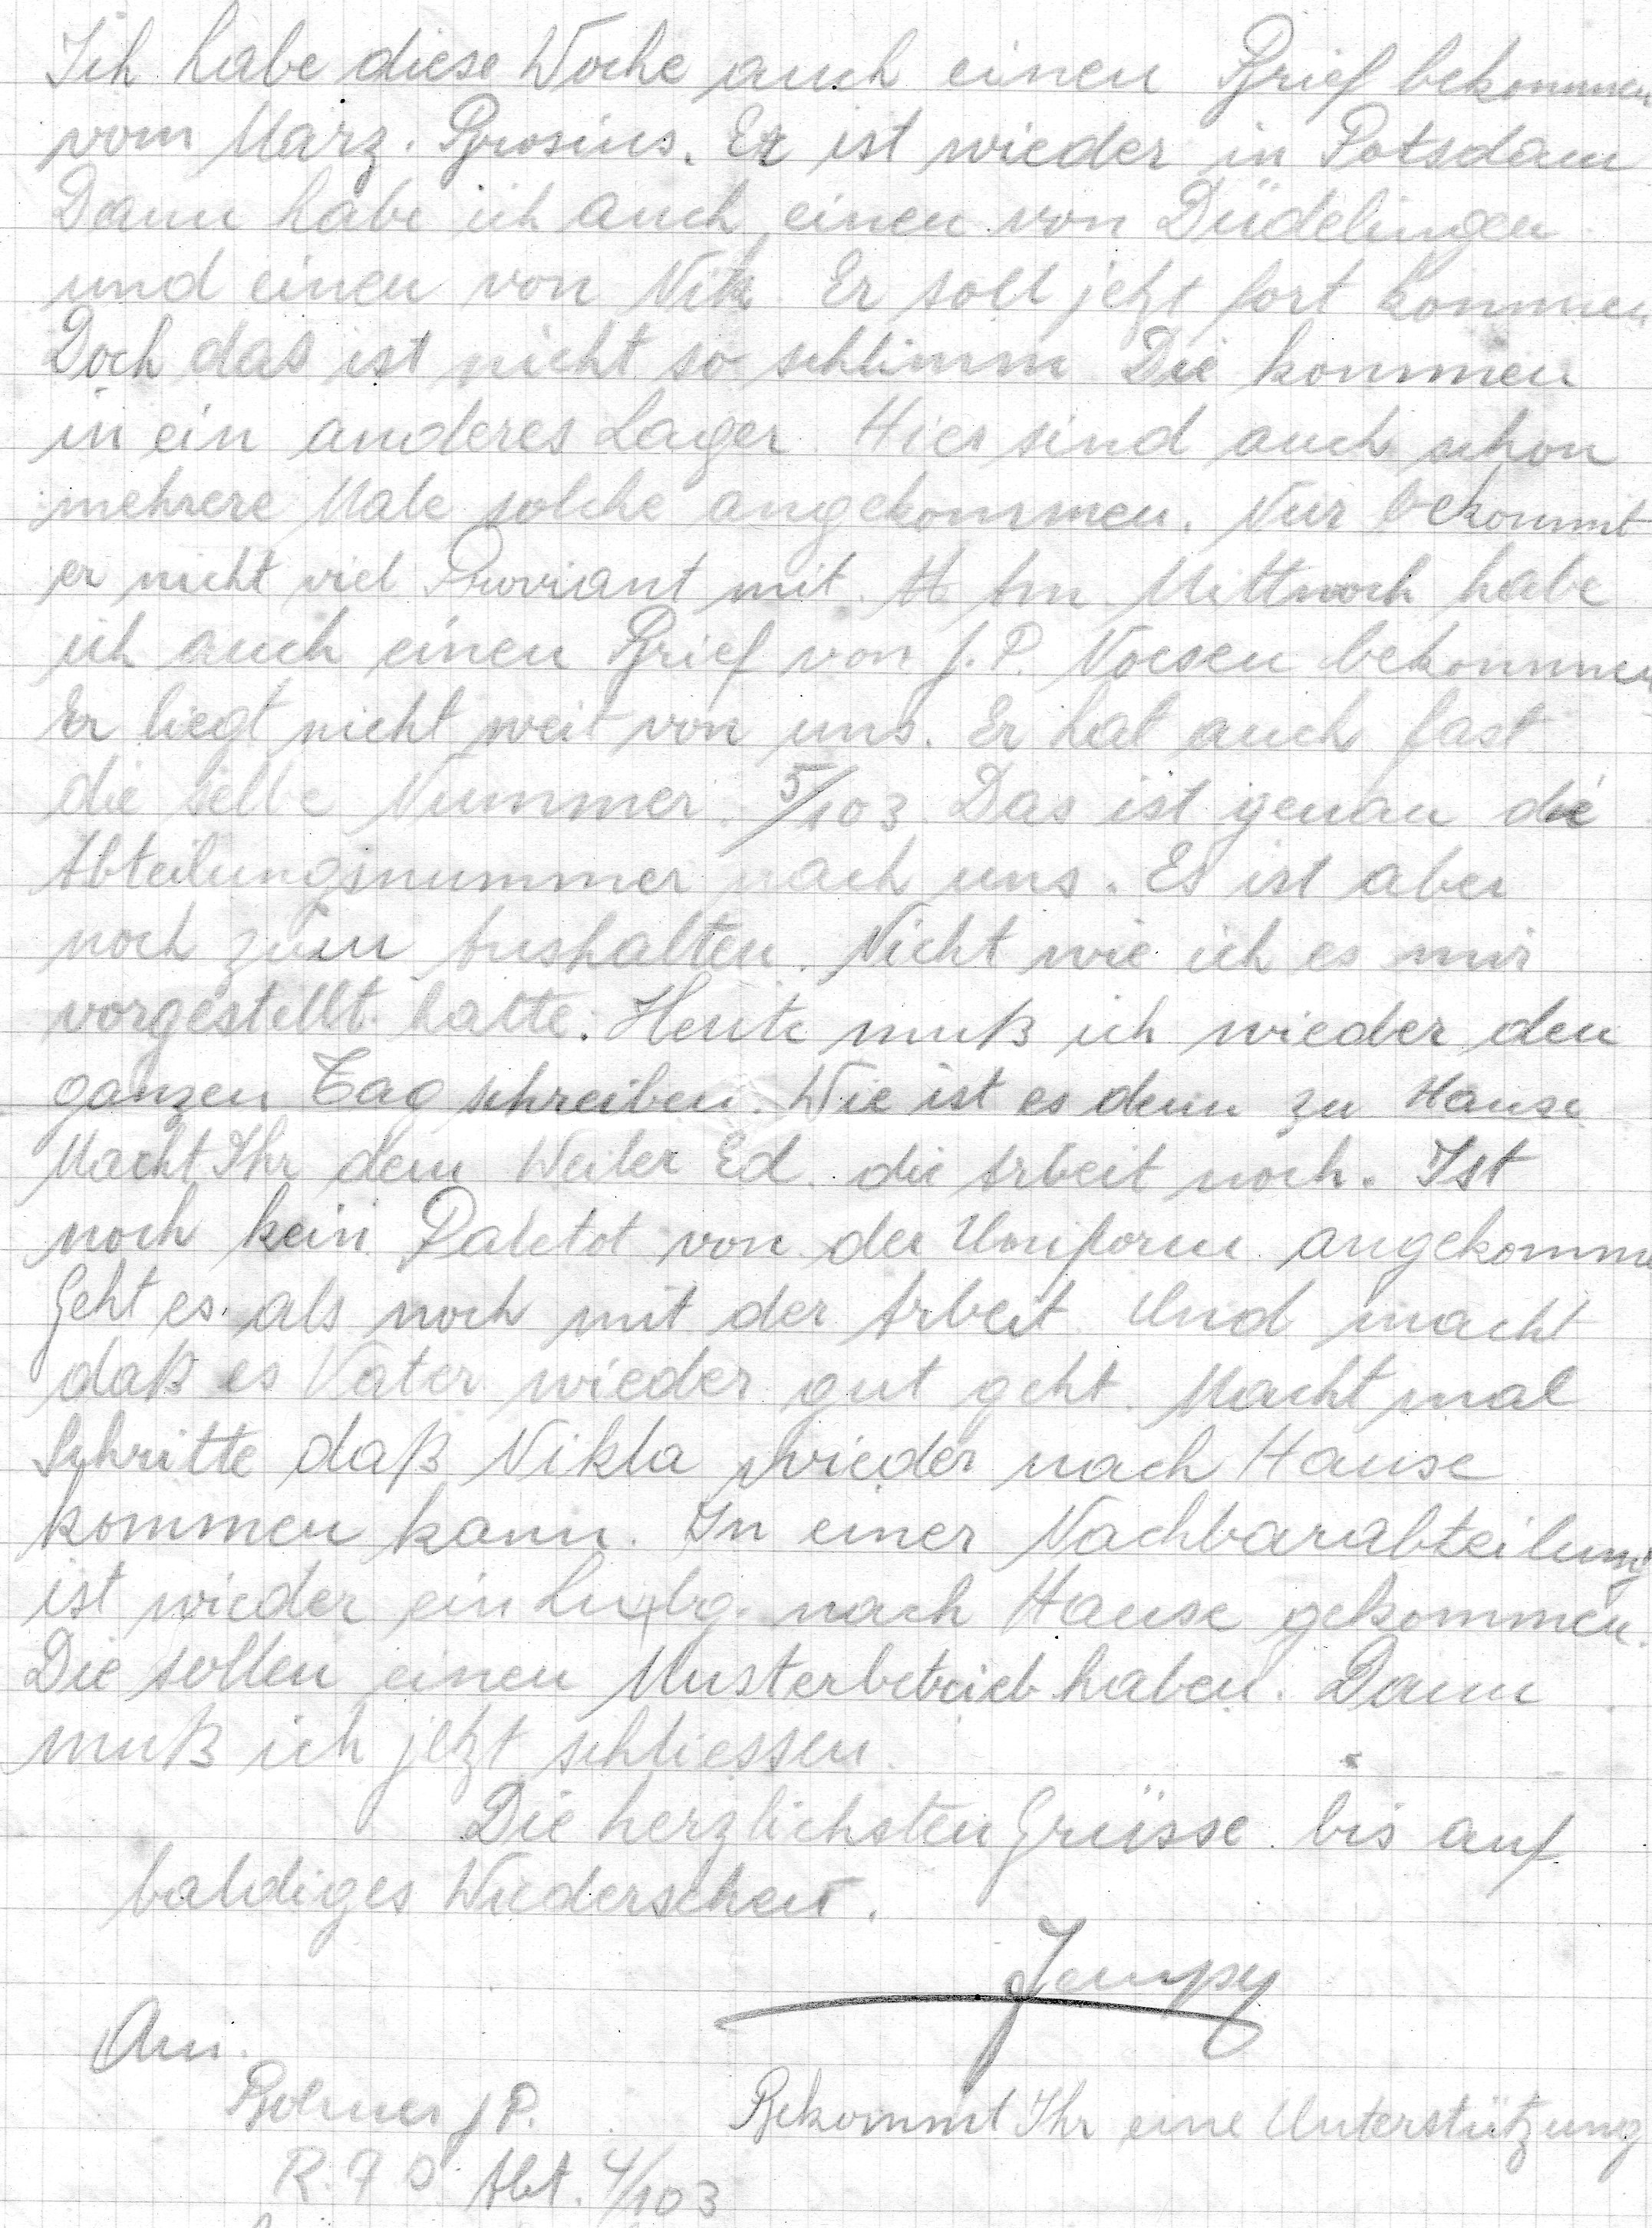 Ich habe diese Woche auch einen Brief bekommen
vom März. Brosius. Er ist wieder in Potsdam
Dann habe ich auch einen von Düdelingen
und einen von Nik. Er soll jetzt fort kommen
Doch das ist nicht so schlimm Die kommen
in ein anderes Lager. Hier sind auch schon
mehrere Male solche angekommen. Nur bekommt
er nicht viel Proviant mit. Am Mittwoch habe
ich auch einen Brief von J.P. Noesen bekommen
Er liegt nicht weit von uns. Er hat auch fast
die selbe Nummer. 5/103. Das ist genau die
Abteilungsnummer nach uns. Es ist aber
noch zum Aushalten. Nicht wie ich es mir
vorgestellt hatte. Heute muß ich wieder den
ganzen Tag schreiben. Wie ist es denn zu Hause
Macht Ihr dem Weiler Ed. die Arbeit noch. Ist
noch kein Paletot von der Uniform angekomme
Geht es als noch mit der Arbeit. Und macht
daß es Vater wieder gut geht. Macht mal
Schritte daß Nikla wieder nach Hause
kommen kann. In einer Nachbarabteilung
ist wieder ein Luxbg. nach Hause gekommen.
Die sollen einen Musterbetrieb haben. Dann
muß ich jetzt schliessen.
Die herzlichsten Grüsse bis auf
baldiges Wiedersehen.
Jempy
Am.
Bohner J P. Bekommt Ihr eine Unterstützung
R. A D. Abt. 4/103